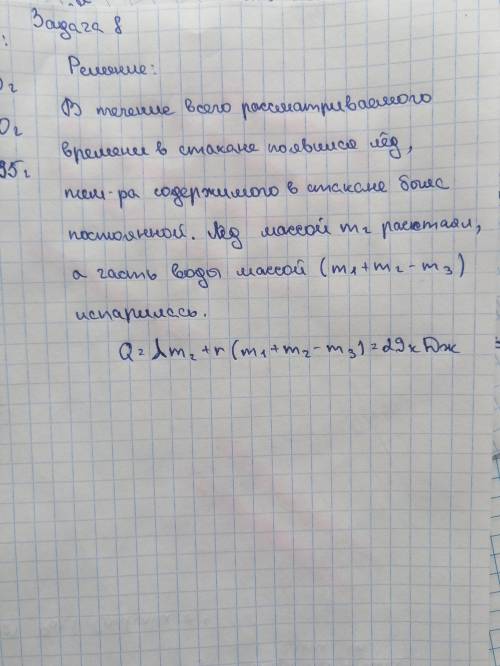 Задача 8
:
Решение:
0г
В течение всего рассматриваемого
0г
времени в стакане появился лёд,
95г
тем-ра содержимого в стакане была
постоянной. Лёд массой m₂ растаял,
а часть воды массой (m₁+m₂-m₃)
испарилась.
Q=λm₂+r(m₁+m₂-m₃)=29кДж